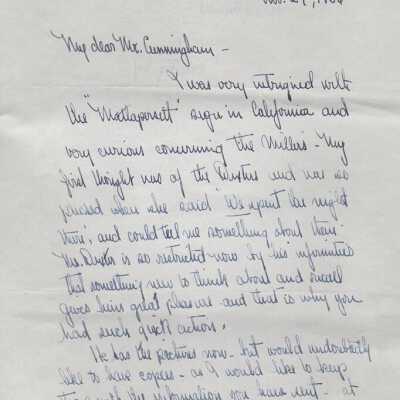 My dear Mr. Cunningham -
I was very intrigued with
the "Mattapoisett" sign in California and
very curious concerning the Millers - My
first thought was of the and was so
pleased when she said "We spent the night
there", and could tell me something about them.
Mr. is so restricted now by his infirmities
that something new to think about and recall
gives him great pleasure and that is why you
had such quick action.
He has the pictures now - but would undoubtedly
like to have copies - as I would like to keep
with the information you have sent - at